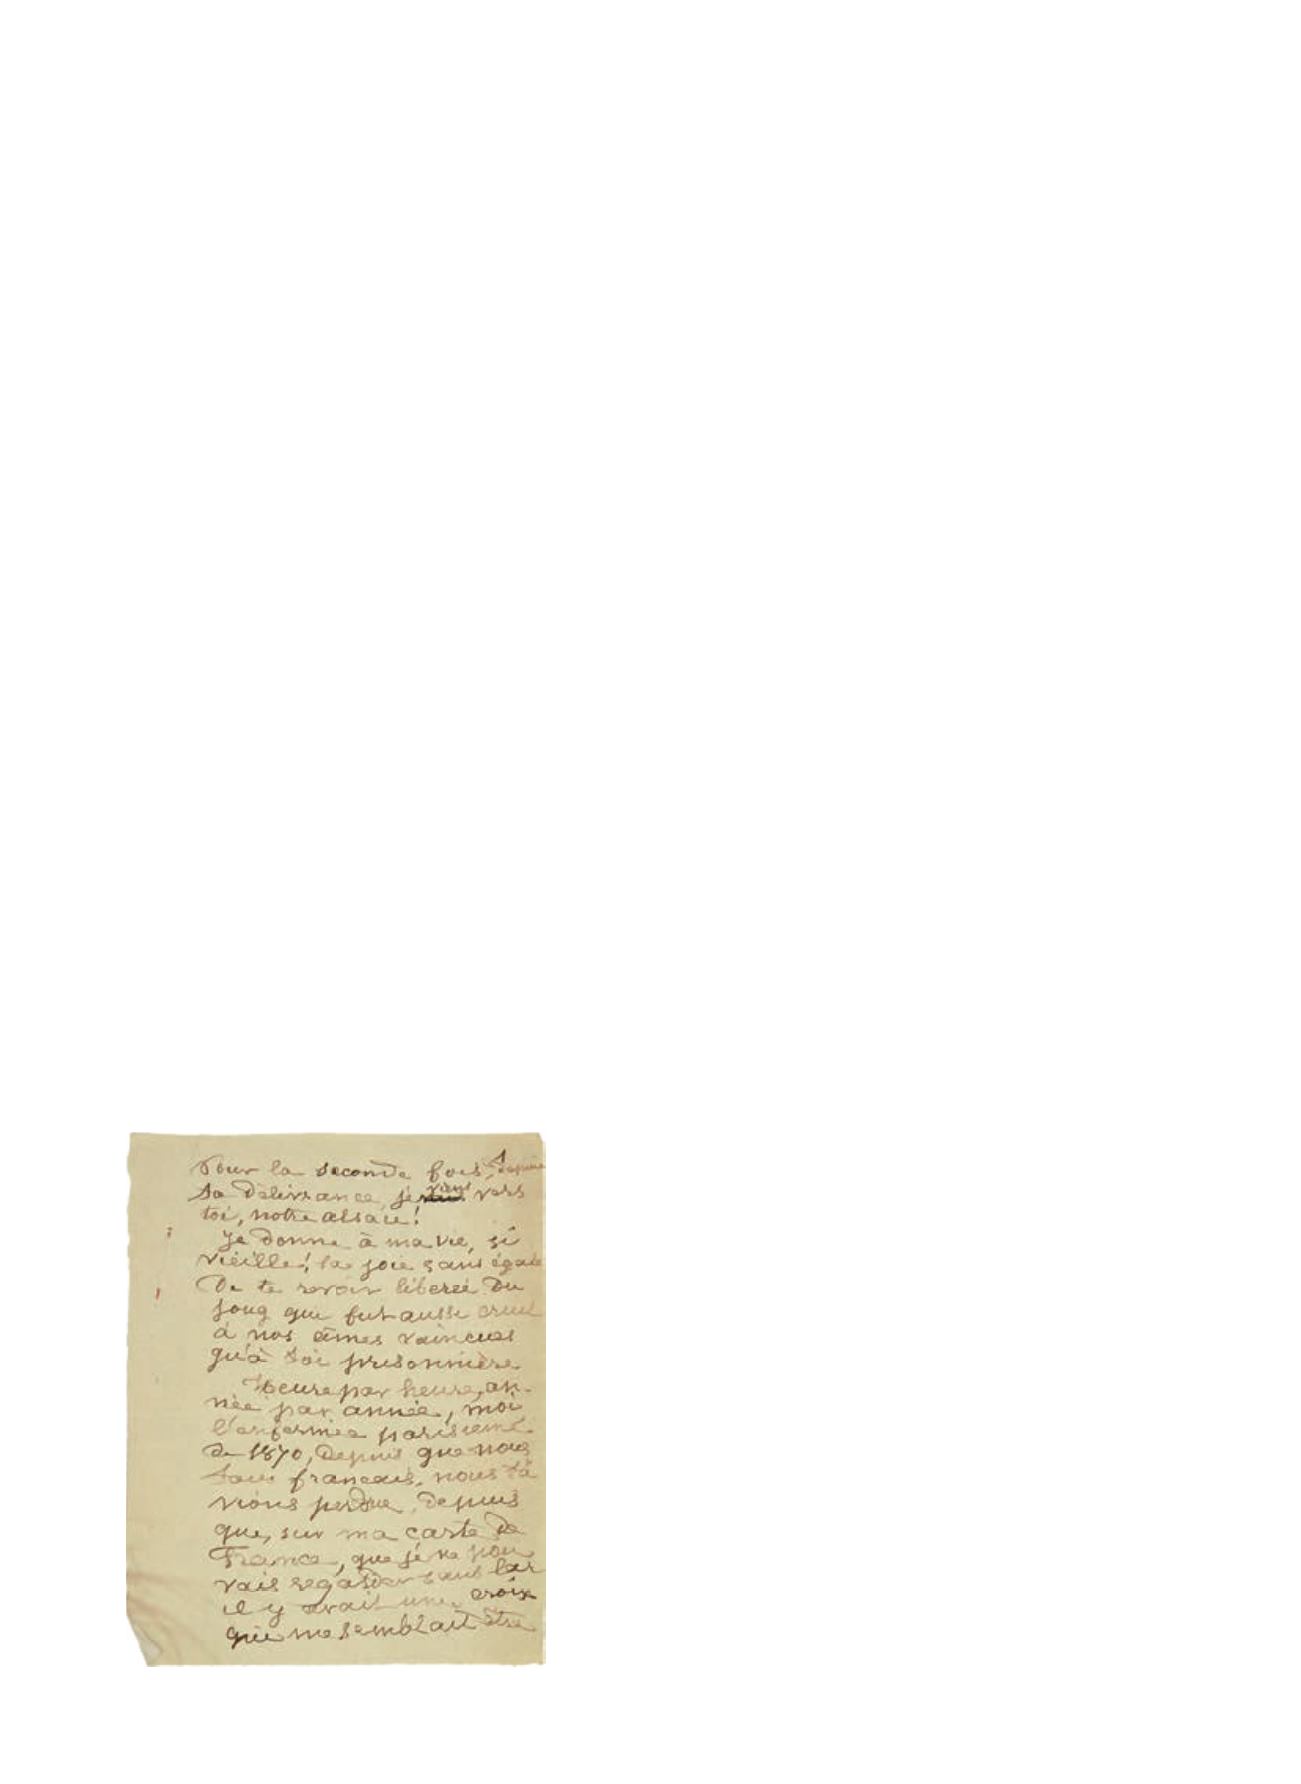 Pour la seconde fois, depuis
ta délivrance, je viens vers
toi, notre alsace!
Je donne à ma vie, si
vieille! la joie sans égale
De te revoir libérée du
joug qui fut aussi cruel
à nos âmes vaincues
qu'à toi prisonnière
Heure par heure, an-
née par année, moi
l'enfermée parisienne
de 1870, depuis que nous
tous français, nous t'a
vions perdue, depuis
que, sur ma carte de
France, que je ne pou
vais regarder sans lar
il y avait une croix
qui me semblait être